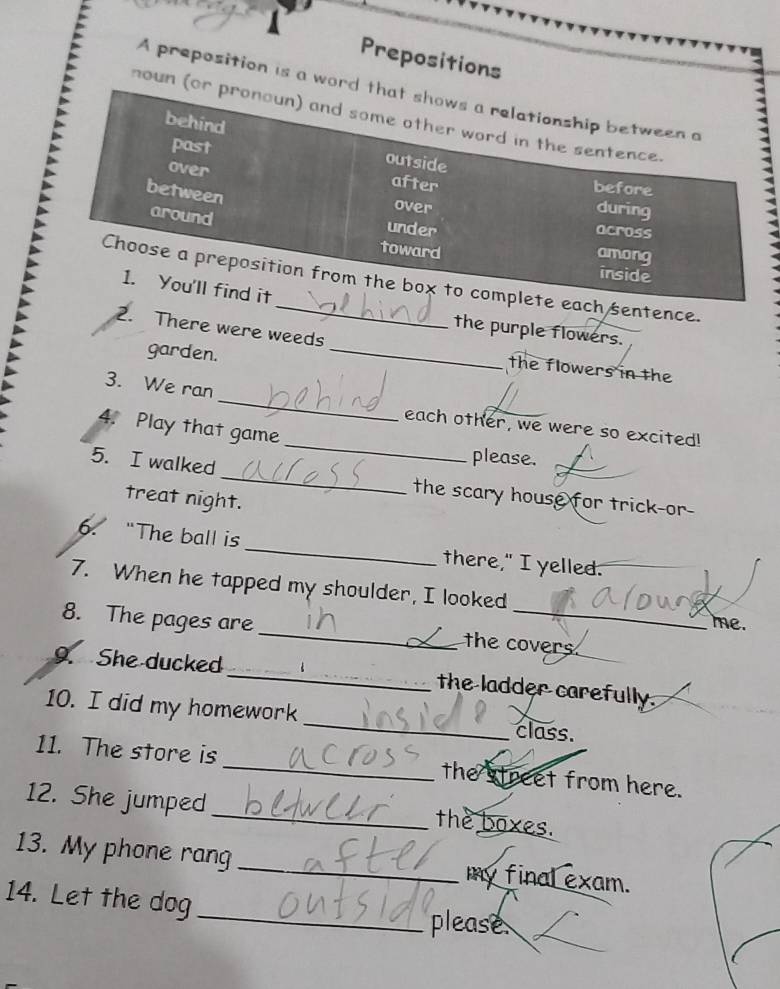 Prepositions
A preposition is a word that shows a relationship between a
noun (or pronoun) and some other word in the sentence.
behind outside before
past after during
over over across
between under among
around toward inside
Choose a preposition from the box to complete each sentence.
1. You'll find it behind the purple flowers.
2. There were weeds ____ the flowers in the
garden.
3. We ran behind each other, we were so excited!
4. Play that game ____ please.
5. I walked across the scary house for trick-or-
treat night.
6. "The ball is ____ there," I yelled.
7. When he tapped my shoulder, I looked around me.
8. The pages are in the covers.
9. She ducked ____ the ladder carefully.
10. I did my homework inside class.
11. The store is across the street from here.
12. She jumped between the boxes.
13. My phone rang after my final exam.
14. Let the dog outside please.